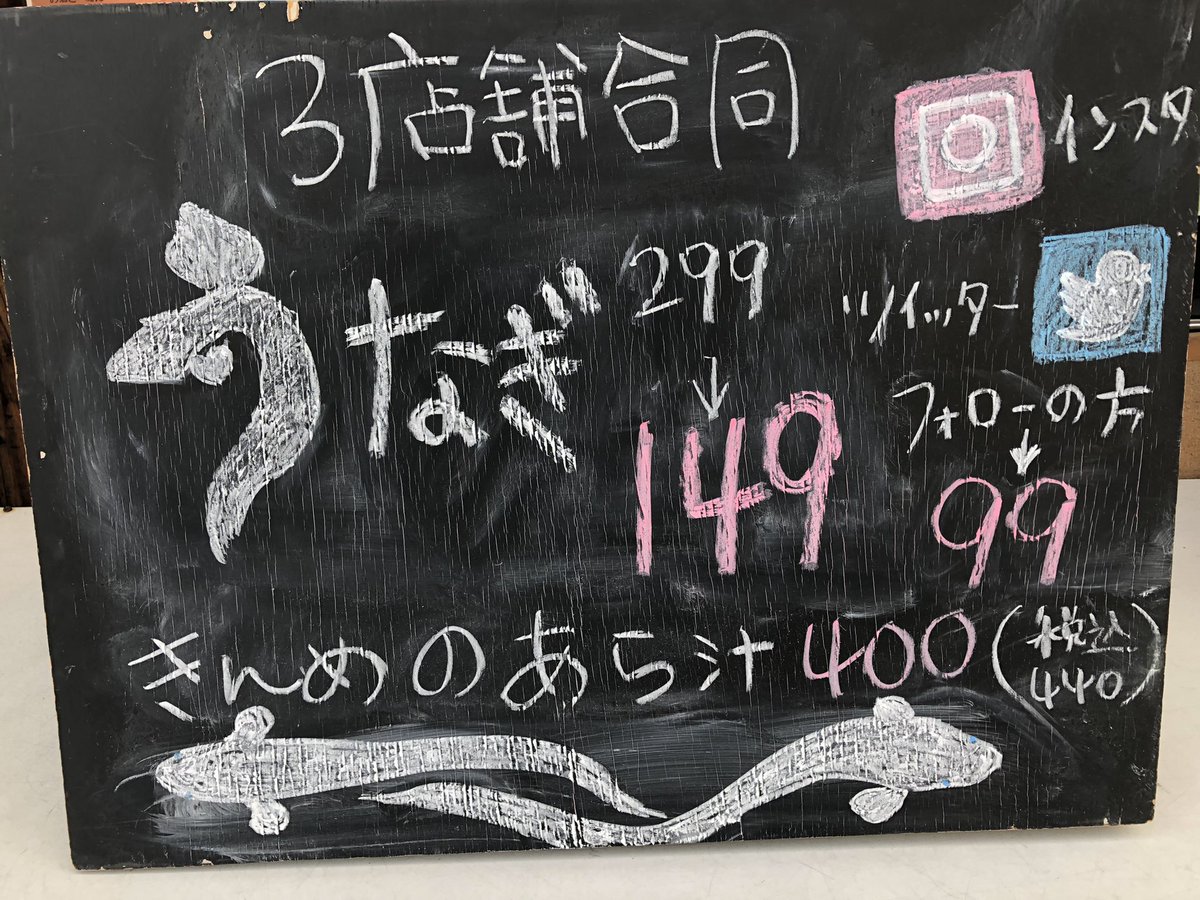 3店舗合同
インスタ
うなぎ
299
↓
149
ツイッター
フォローの方
↓
99
きんめのあら汁 400 (税込 440)